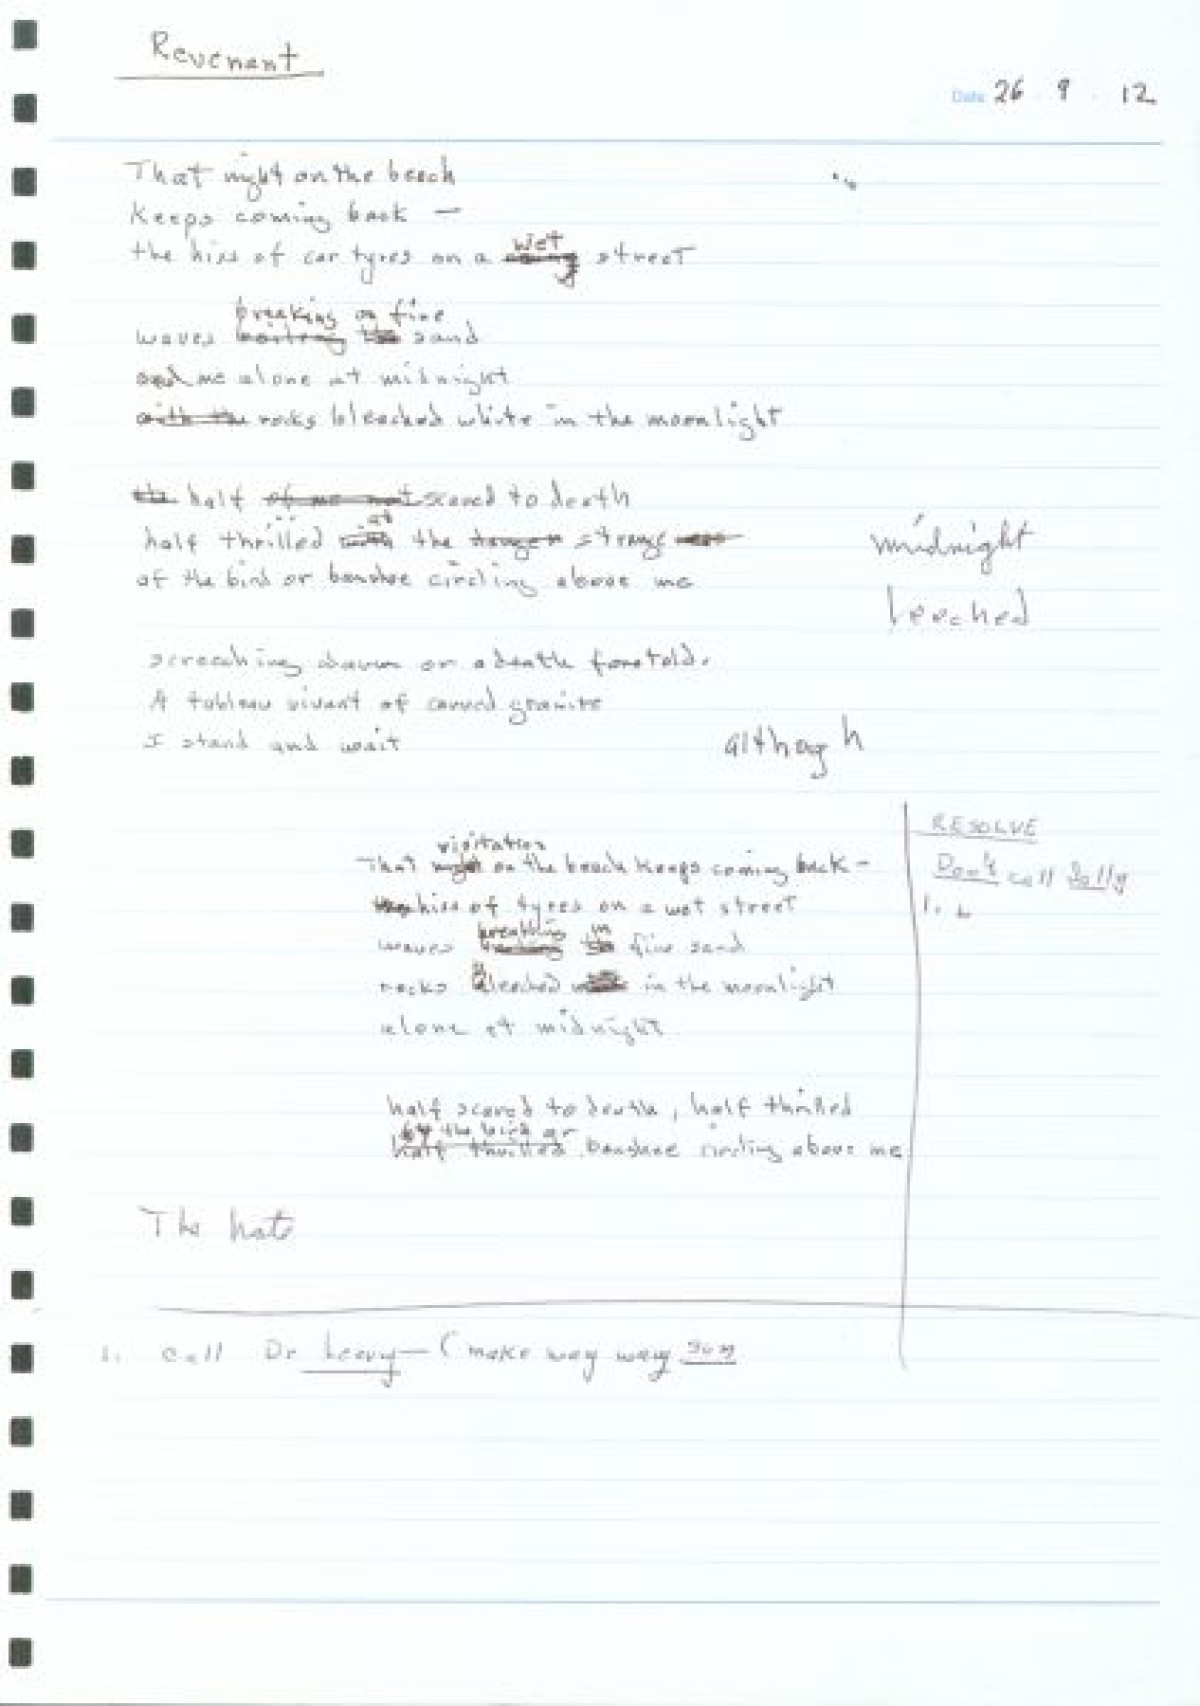 Revenant
Date 26 . 9 . 12
That night on the beach
Keeps coming back —
the hiss of car tyres on a wet street
breaking on fine
waves sand
and me alone at midnight
with the rocks bleached white in the moonlight
the half of me not scared to death
at
half thrilled with the strange
of the bird or banshee circling above me
midnight
leeched
screeching dawn or a death foretold.
A tableau vivant of carved granite
I stand and wait
althogh
RESOLVE
Don't call Sally
1.
visitation
That night on the beach keeps coming back —
the hiss of tyres on a wet street
breathing in
waves the fine sand
rocks bleached in the moonlight
alone at midnight
half scared to death, half thrilled
by the bird or
half thrilled banshee circling above me
The hat
1. call Dr Leavy — (make way way